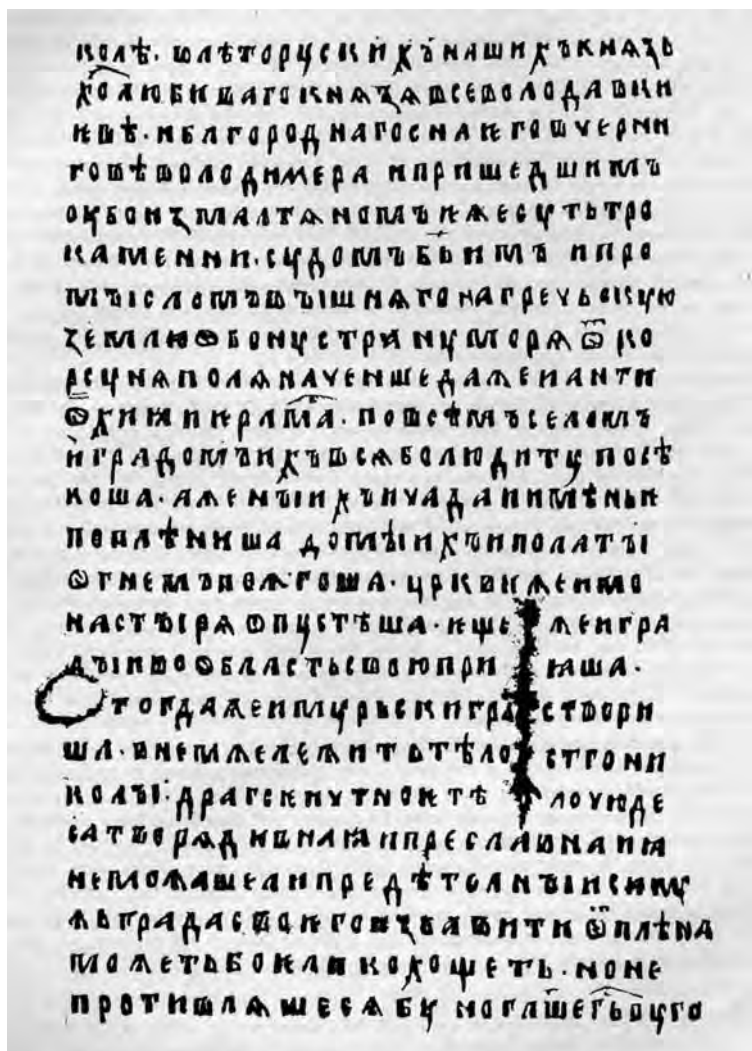 колѣ. ѿлѣторускихъ нашихъ кнѧзь
холюбиваго кнѧзѧ всеволода в ки
ѥвѣ. и блгороднаго сна ѥго в черни
говѣ володимера и пришедшимъ
оубо измалтѧномъ иже суть тро
каменни. судомъ бьимъ и про
мъісломъ въішнѧго на гречьскую
землю ѡбону страну морѧ ѿ ко
рсунѧ полѧ начен ше даже и анти
ѡхиꙗ и иѥрлма. по всѣмъ селомъ
и градомъ ихъ всѧ болюди ту посѣ
коша. а женъі ихъ и чада и имѣнье
поплѣниша домъі ихъ и полатъі
ѡгнемъ пожгоша. цркви же и мо
настъірѧ ѡпустѣша. ище же и гра
дъі и во ѡбласть свою приꙗша.
тогда же и мурьски гра створи
ша. в нем же лежить тѣло стго ни
колъі: драгеѥ и чтноѥ тѣло чюде
са творѧ дивнаꙗ и преславнаꙗ
не можаше ли предѣтолнъіи си му
жь града своѥго избавити ѿ плѣна
можеть бо ѥлико хощеть. но не
противлѧшесѧ бу но глше гь оуго